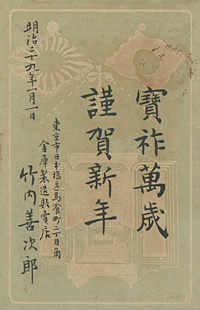 寶祚萬歳
謹賀新年
明治二十九年一月一日
東京市日本橋區馬喰町二丁目角
金庫製造販賣店
竹内善次郎